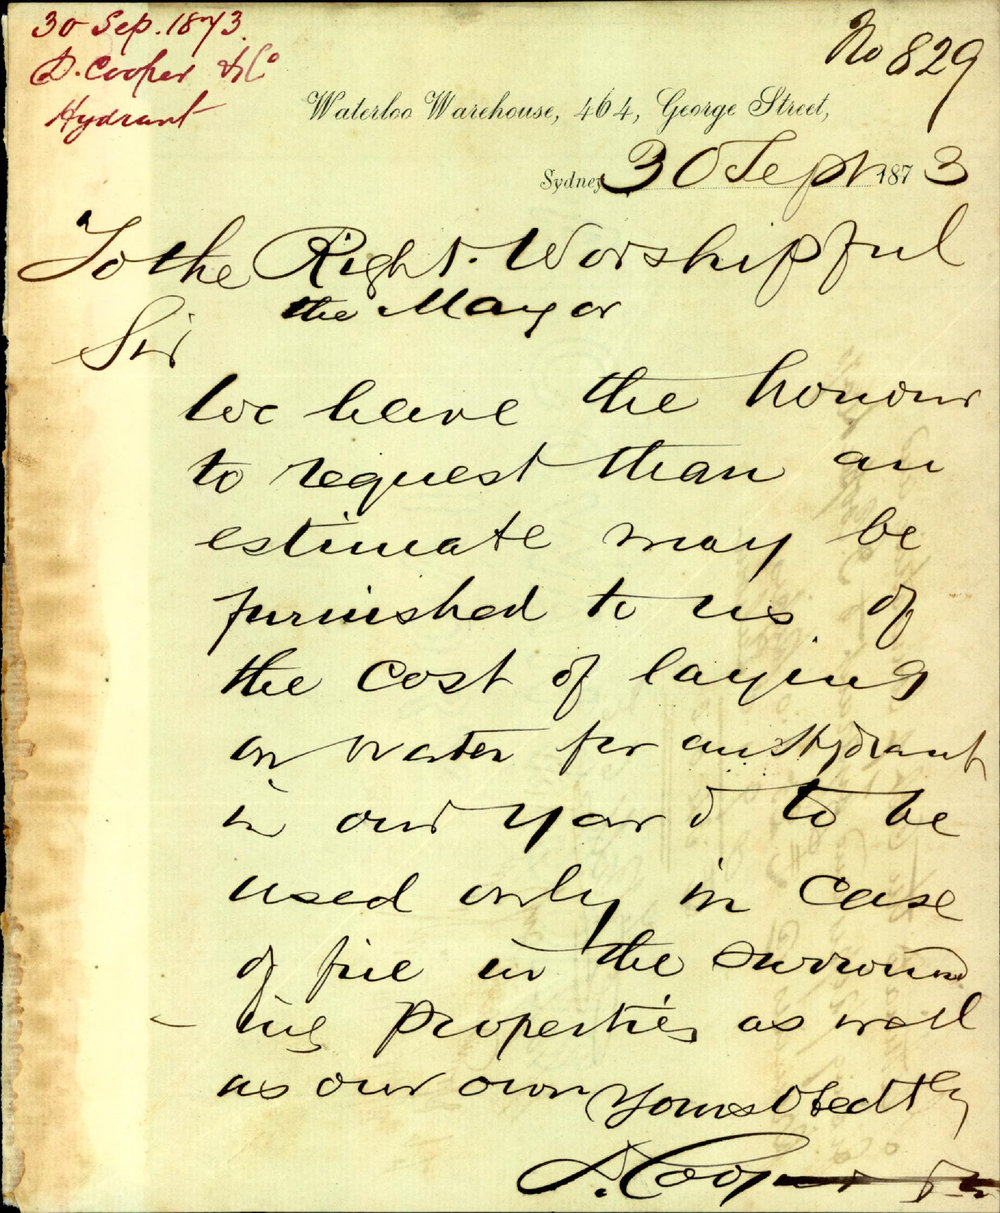 30 Sep. 1873.
D. Cooper & Co
Hydrant
No 829
Waterloo Warehouse, 464, George Street,
Sydney 30 Sept 1873
To the Right Worshipful
the Mayor
Sir
We have the honour
to request than an
estimate may be
furnished to us of
the cost of laying
on water for an Hydrant
in our yard to be
used only in case
of fire in the surround
-ing properties as well
as our own Yours Obedtly
D. Cooper